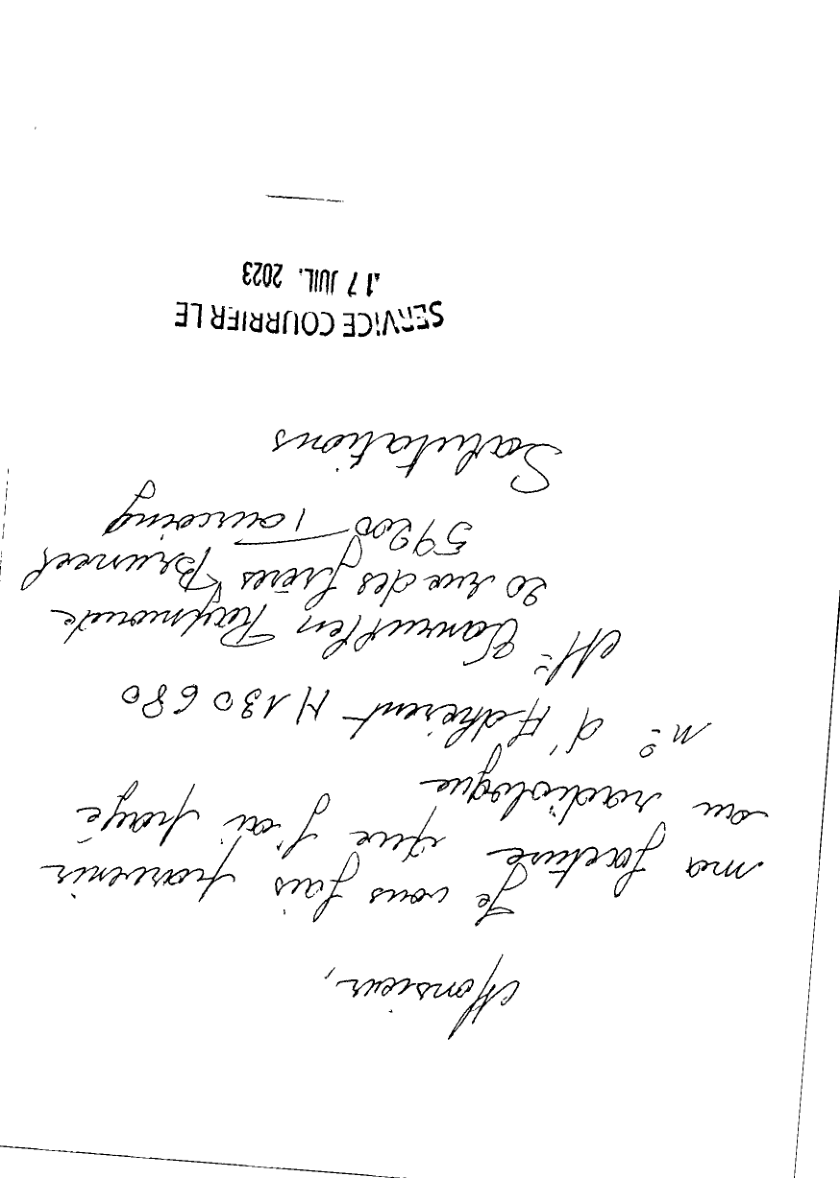 Monsieur,
Je vous fais parvenir
ma facture que j'ai payé
au radiologue
n° d'Adhérent H 130 680
20 rue des frères Bruneel
59200 Tourcoing
Salutations
SERVICE COURRIER LE
17 JUIL. 2023